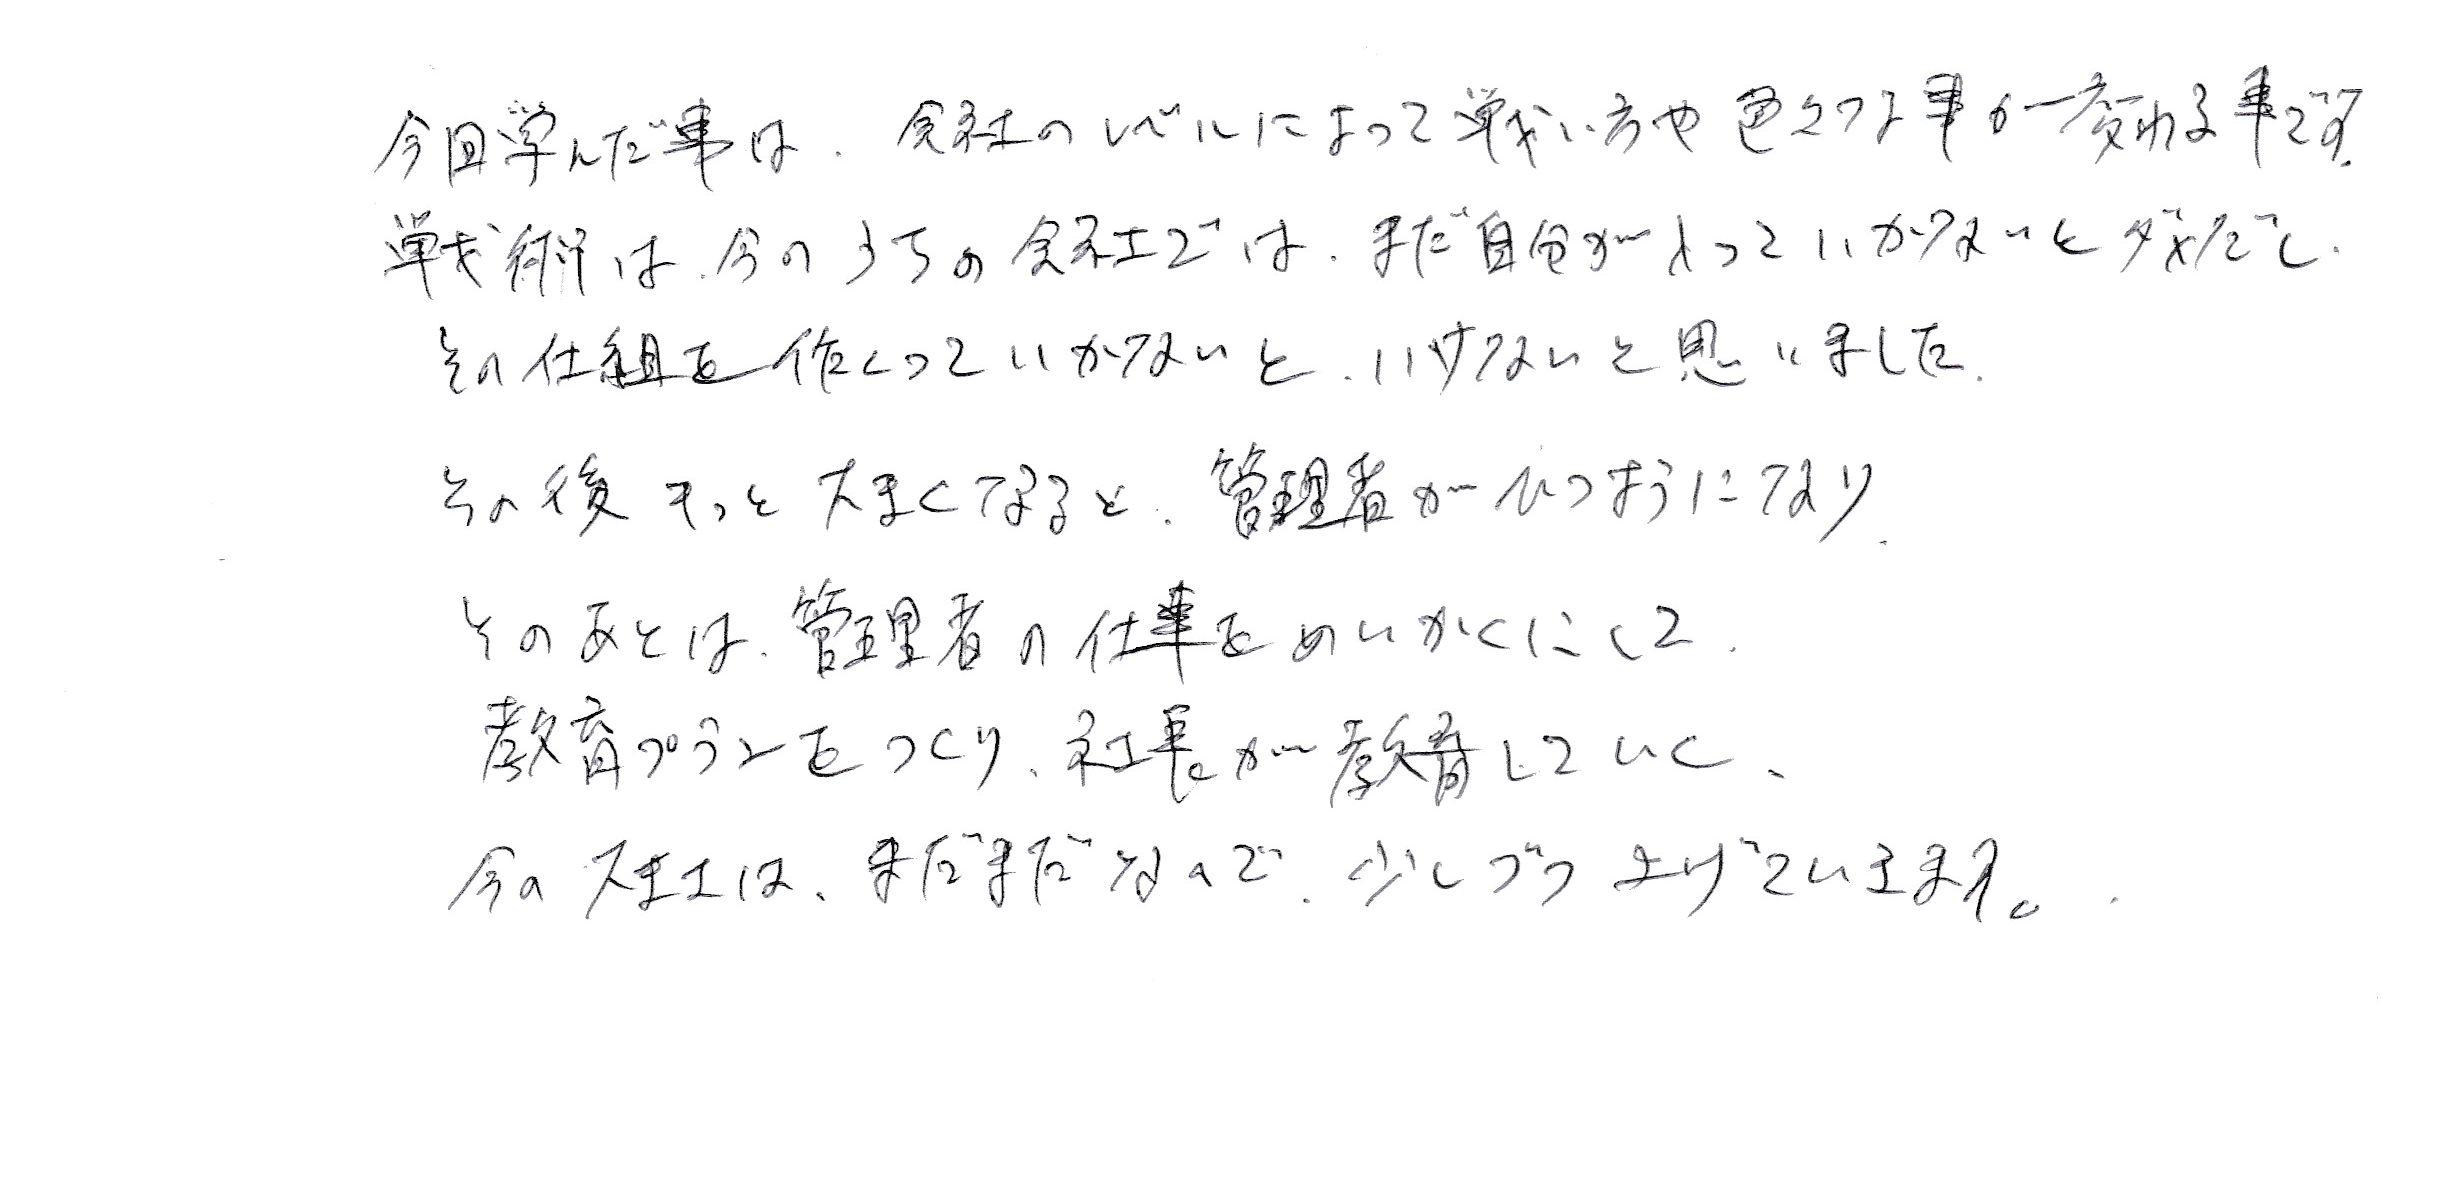 今回学んだ事は、会社のレベルによって戦い方や色々な事が変わる事です。
戦術は、今のうちの会社では、まだ自分がやっていかないとダメだし、
その仕組を作くっていかないと、いけないと思いました。
その後もっと大きくなると、管理者がひつようになり、
そのあとは、管理者の仕事をめいかくにして、
教育プランをつくり、社長が教育していく、
今の は、まだまだなので、少しづつ上げていきます。